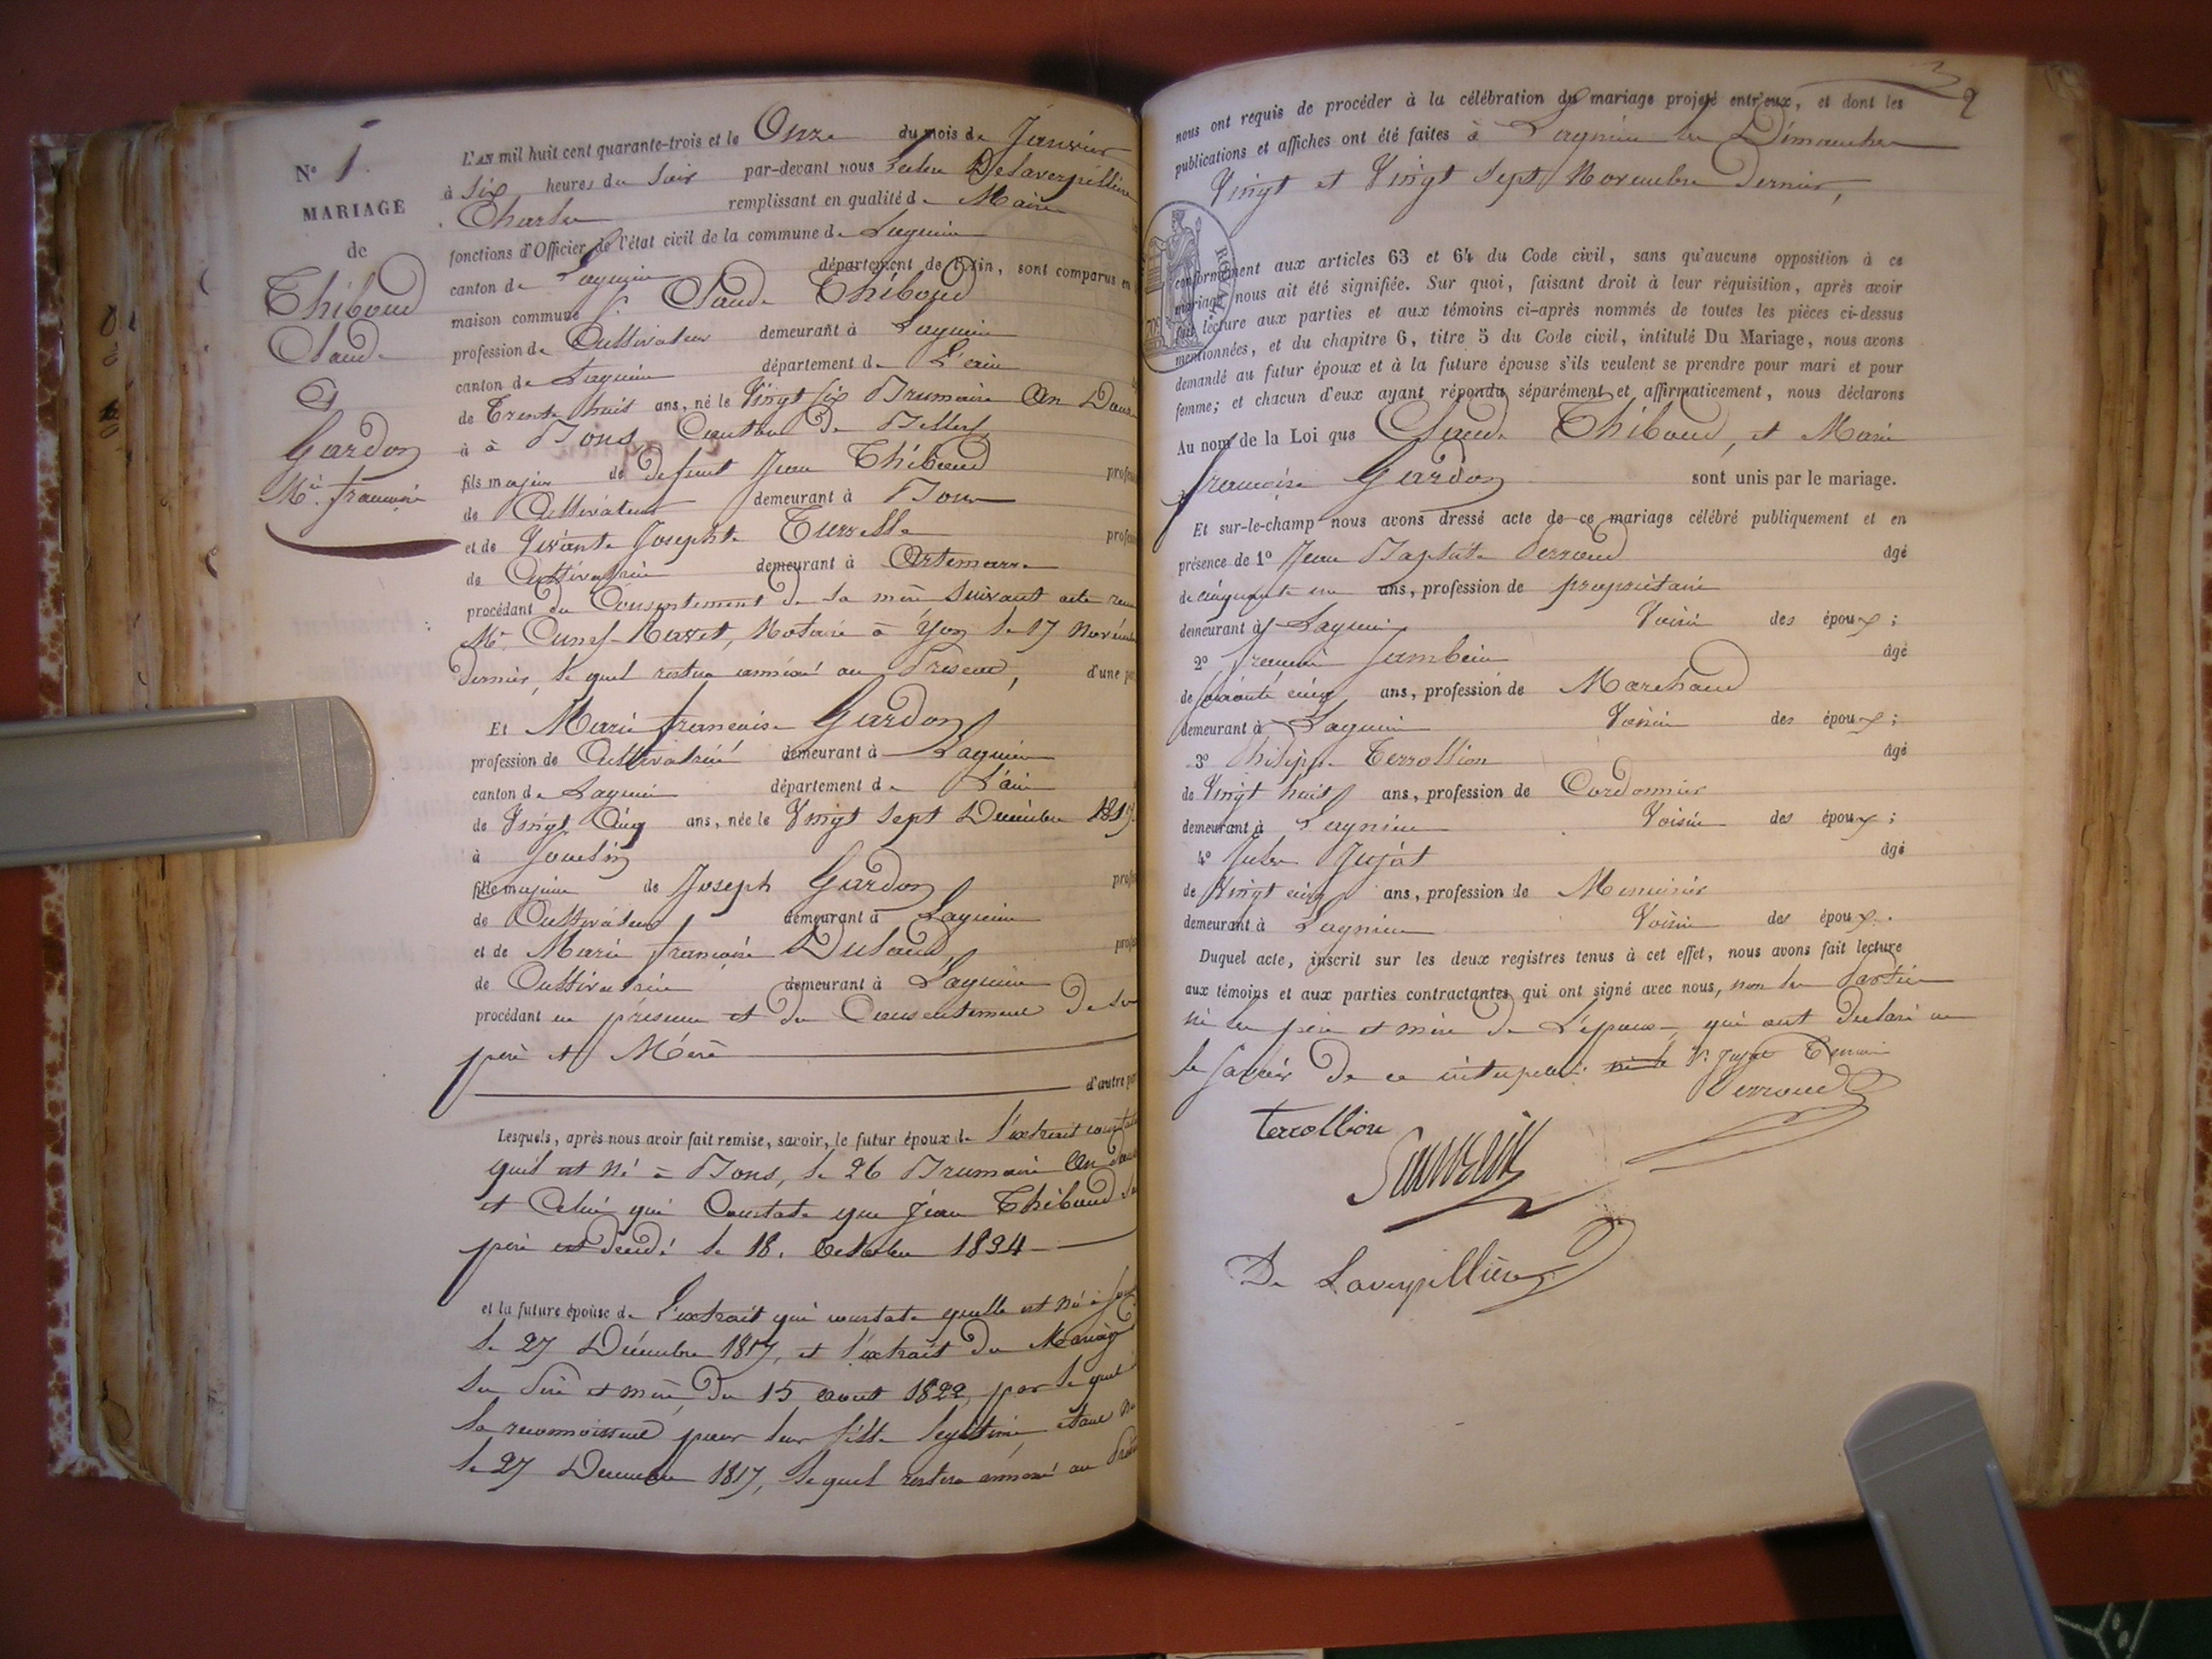 N° 1.
MARIAGE
de
Thiboud
Claude
Et
Gardon
Mie. françoise
L'AN mil huit cent quarante-trois et le Onze du mois de Janvier
à Six heures du Soir par-devant nous Delaverpillière
Charles remplissant en qualité de Maire
fonctions d'Officier de l'état civil de la commune de Lagnieu
canton de Lagnieu département de l'Ain, sont comparus en
maison commune Claude Thiboud
profession de Cultivateur demeurant à Lagnieu
canton de Lagnieu département de L'ain
de Trente huit ans, né le Vingt Six Brumaire An Douze
à à Bons, Canton de Belley
fils majeur de defunt Jean Thiboud
de Cultivateur demeurant à Bons
et de Vivante Josephte Turrelle
de Cultivatrice demeurant à Artemarre
procédant du Consentement de Sa mère Suivant acte
Me. Cunef-Ravet, Notaire à Yon le 17 Novembre
dernier, le quel restera annéxé au Présent, d'une
Et Marie françoise Gardon
profession de Cultivatrice demeurant à Lagnieu
canton de Lagnieu département de L'ain
de Vingt Cinq ans, née le Vingt Sept Décembre 1817
à
fille majeure de Joseph Gardon
de Cultivateur demeurant à Lagnieu
et de Marie françoise Dulaud
de Cultivatrice demeurant à Lagnieu
procédant en présence et du Consentement de Ses
père et Mère
d'autre
Lesquels, après nous avoir fait remise, savoir, le futur époux de l'extrait
qu'il est né à Bons, le 26 Brumaire An douze
et Celui qui Constate que Jean Thiboud
père est décédé le 18. Octobre 1834
et la future épouse de L'extrait qui constate quelle est né à
le 27 Décembre 1817, et l'extrait du Mariage
des Père et mère, du 15 Aout 1822, par le quel
la reconnoissent pour leur fille legitime étant né
le 27 Decembre 1817, le quel restera annéxé au
2
nous ont requis de procéder à la célébration du mariage projeté entr'eux, et dont les
publications et affiches ont été faites à Lagnieu les Dimanches
Vingt et Vingt Sept Novembre Dernier,
ROYAL
conformément aux articles 63 et 64 du Code civil, sans qu'aucune opposition à ce
mariage nous ait été signifiée. Sur quoi, faisant droit à leur réquisition, après avoir
fait lecture aux parties et aux témoins ci-après nommés de toutes les pièces ci-dessus
mentionnées, et du chapitre 6, titre 5 du Code civil, intitulé Du Mariage, nous avons
demandé au futur époux et à la future épouse s'ils veulent se prendre pour mari et pour
femme; et chacun d'eux ayant répondu séparément et affirmativement, nous déclarons
Au nom de la Loi que Claude Thiboud, et Marie
françoise Gardon sont unis par le mariage.
Et sur-le-champ nous avons dressé acte de ce mariage célébré publiquement et en
présence de 1° Jean Baptiste Perroud âgé
de cinquante un ans, profession de propriétaire
demeurant à Lagnieu Voisin des époux;
2° françois Jambein âgé
de soixante cinq ans, profession de Marchand
demeurant à Lagnieu Voisin des époux;
3° Philippe Terrollion âgé
de Vingt huit ans, profession de Cordonnier
demeurant à Lagnieu Voisin des époux;
4° Jules Jujat âgé
de Vingt cinq ans, profession de Menuisier
demeurant à Lagnieu Voisin des époux.
Duquel acte, inscrit sur les deux registres tenus à cet effet, nous avons fait lecture
aux témoins et aux parties contractantes qui ont signé avec nous, non les Parties
ni les père et mère de L'épouse, qui ont Declaré ne
le Savoir de ce interpellé. Jujat Temoin
Perroud
Terrollion
De Laverpillière